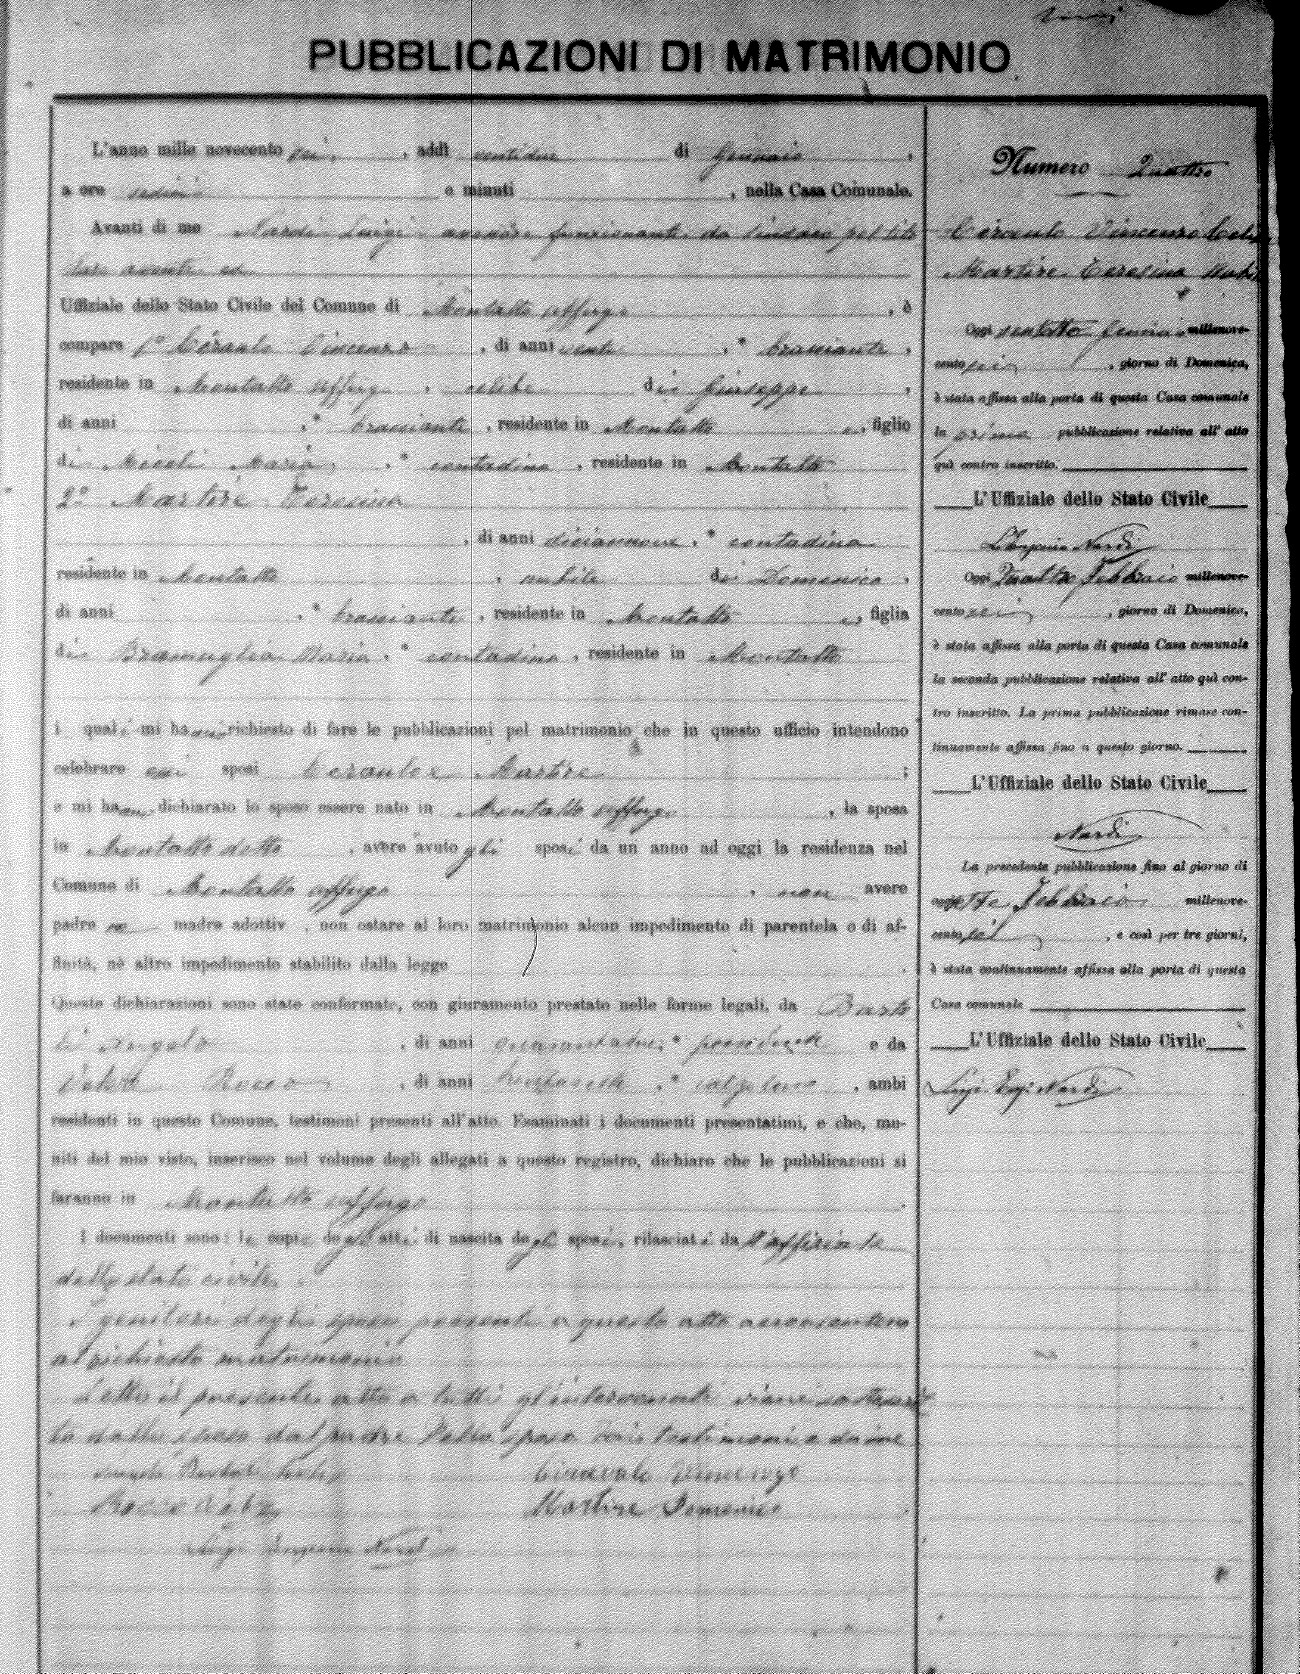 PUBBLICAZIONI DI MATRIMONIO
L'anno mille novecento sei, addì ventidue di Gennaio,
a ore sedici e minuti , nella Casa Comunale.
Avanti di me Nardi Luigi assessore funzionante da Sindaco pel tito
lare assente ed
Uffiziale dello Stato Civile del Comune di Montalto Uffugo, è
comparso 1° Ceraulo Vincenzo, di anni venti, * bracciante,
residente in Montalto Uffugo, celibe di Giuseppe,
di anni , * bracciante, residente in Montalto e, figlio
di Miceli Maria, * contadina, residente in Montalto
2° Martire Teresina
, di anni diciannove, * contadina
residente in Montalto, nubile di Domenico,
di anni , * bracciante, residente in Montalto e, figlia
di Bramuglia Maria, * contadina, residente in Montalto
i quali mi hanno richiesto di fare le pubblicazioni pel matrimonio che in questo ufficio intendono
celebrare essi sposi Ceraulo e Martire;
e mi hanno dichiarato lo sposo essere nato in Montalto Uffugo, la sposa
in Montalto detto, avere avuto gli sposi da un anno ad oggi la residenza nel
Comune di Montalto Uffugo, non avere
padre ne madre adottiv , non ostare al loro matrimonio alcun impedimento di parentela o di af-
finità, nè altro impedimento stabilito dalla legge .
Queste dichiarazioni sono state confermate, con giuramento prestato nelle forme legali, da
Angelo, di anni quarantadue, * e da
Rocco, di anni , * calzolaio, ambi
residenti in questo Comune, testimoni presenti all'atto. Esaminati i documenti presentatimi, e che, mu-
niti del mio visto, inserisco nel volume degli allegati a questo registro, dichiaro che le pubblicazioni si
faranno in Montalto Uffugo.
I documenti sono: le copie degli atti di nascita degli sposi, rilasciati da l'uffiziale
dello stato civile.
I genitori degli sposi presenti a questo atto acconsentono
al richiesto matrimonio.
Letto il presente atto a tutti gl'intervenuti viene sottoscrit
to dallo sposo dal padre della sposa dai testimoni e da me
Angelo
Ceraulo Vincenzo
Rocco
Martire Domenico
Luigi Eugenio Nardi
Numero Quattro
Ceraulo Vincenzo Celibe
Martire Teresina Nubile
Oggi ventotto Gennaio millenove-
cento sei, giorno di Domenica,
è stata affissa alla porta di questa Casa comunale
la prima pubblicazione relativa all'atto
quì contro inscritto.
L'Uffiziale dello Stato Civile
L. Eugenio Nardi
Oggi Quattro Febbraio millenove-
cento sei, giorno di Domenica,
è stata affissa alla porta di questa Casa comunale
la seconda pubblicazione relativa all'atto quì con-
tro inscritto. La prima pubblicazione rimase con-
tinuamente affissa fino a questo giorno.
L'Uffiziale dello Stato Civile
Nardi
La precedente pubblicazione fino al giorno di
oggi sette Febbraio millenove-
cento sei, e così per tre giorni,
è stata continuamente affissa alla porta di questa
Casa comunale
L'Uffiziale dello Stato Civile
Luigi Eug. Nardi